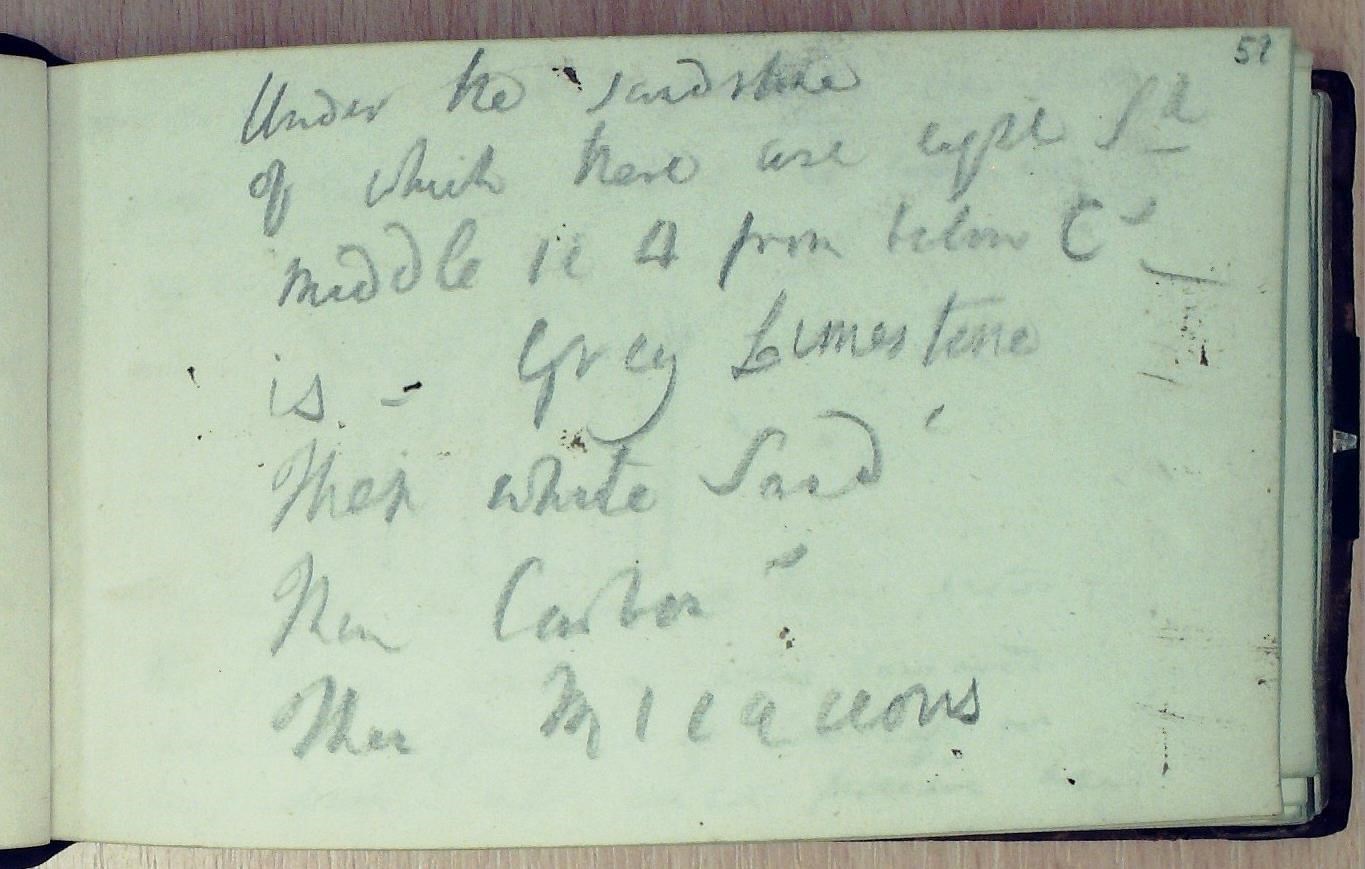 51
Under the sandstone
of which there are eight Sd
middle is 4 from below C
is - Grey Limestone
Then white Sand
Then Carbon
Then Micaceous